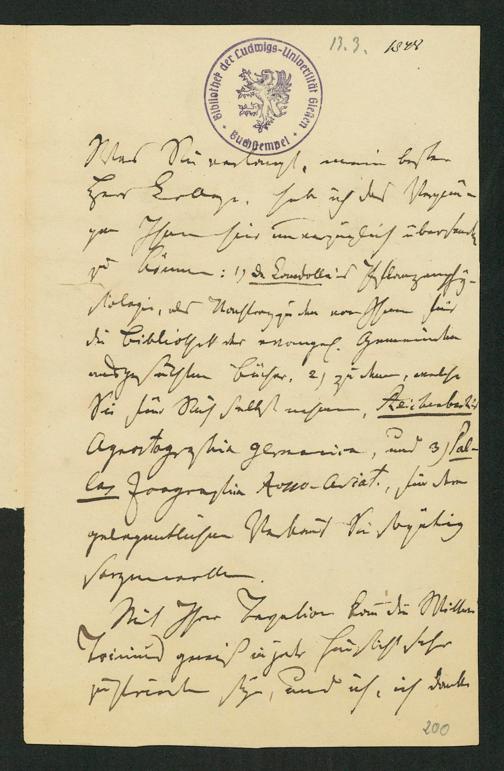 13.3. 1848
Bibliothek der Ludwigs-Universität Gießen
Buchstempel
Was Sie verlangt, mein bester
Herr College, habe ich das Vergnü-
gen Ihnen hier unverzüglich übersenden
zu können: 1) De Candolle's Pflanzenphy-
siologie, als Nachtrag zu den von Ihnen für
die Bibliothek der evangel. Gemeinden
ausgesuchten Bücher, 2) zu denen, welche
Sie für Sich selbst nehmen, Reichenbach's
Agrostographia germanica, und 3) Pal-
las Zoographia Rosso-Asiat., für deren
gelegentlichen Verkauf Sie so gütig
sorgen wollen.
Mit Ihrer kann die Wittwe
Trinius gewiß in jeder Hinsicht sehr
zufrieden seyn, und ich, ich danke
200